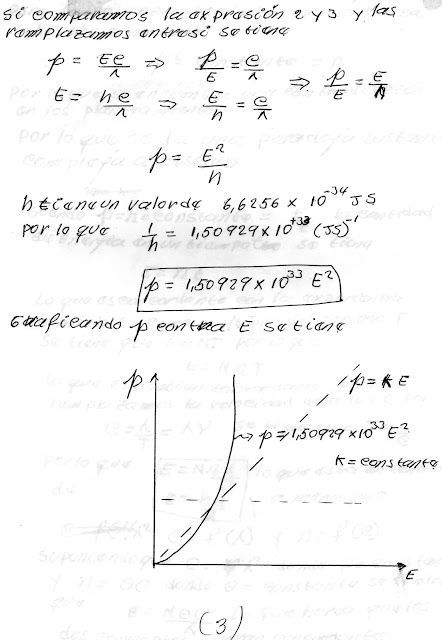 si comparamos la expresión 2 y 3 y las
remplazamos entre si se tiene
p = Ec/λ ⇒ p/E = c/λ
⇒ p/E = E/h
E = hc/λ ⇒ E/h = c/λ
p = E²/h
h tiene un valor de 6,6256 x 10⁻³⁴ JS
por lo que 1/h = 1,50929 x 10⁺³³ (JS)⁻¹
p = 1,50929 x 10³³ E²
Graficando p contra E se tiene
p
p = K E
p = 1,50929 x 10³³ E²
K = constante
E
(3)